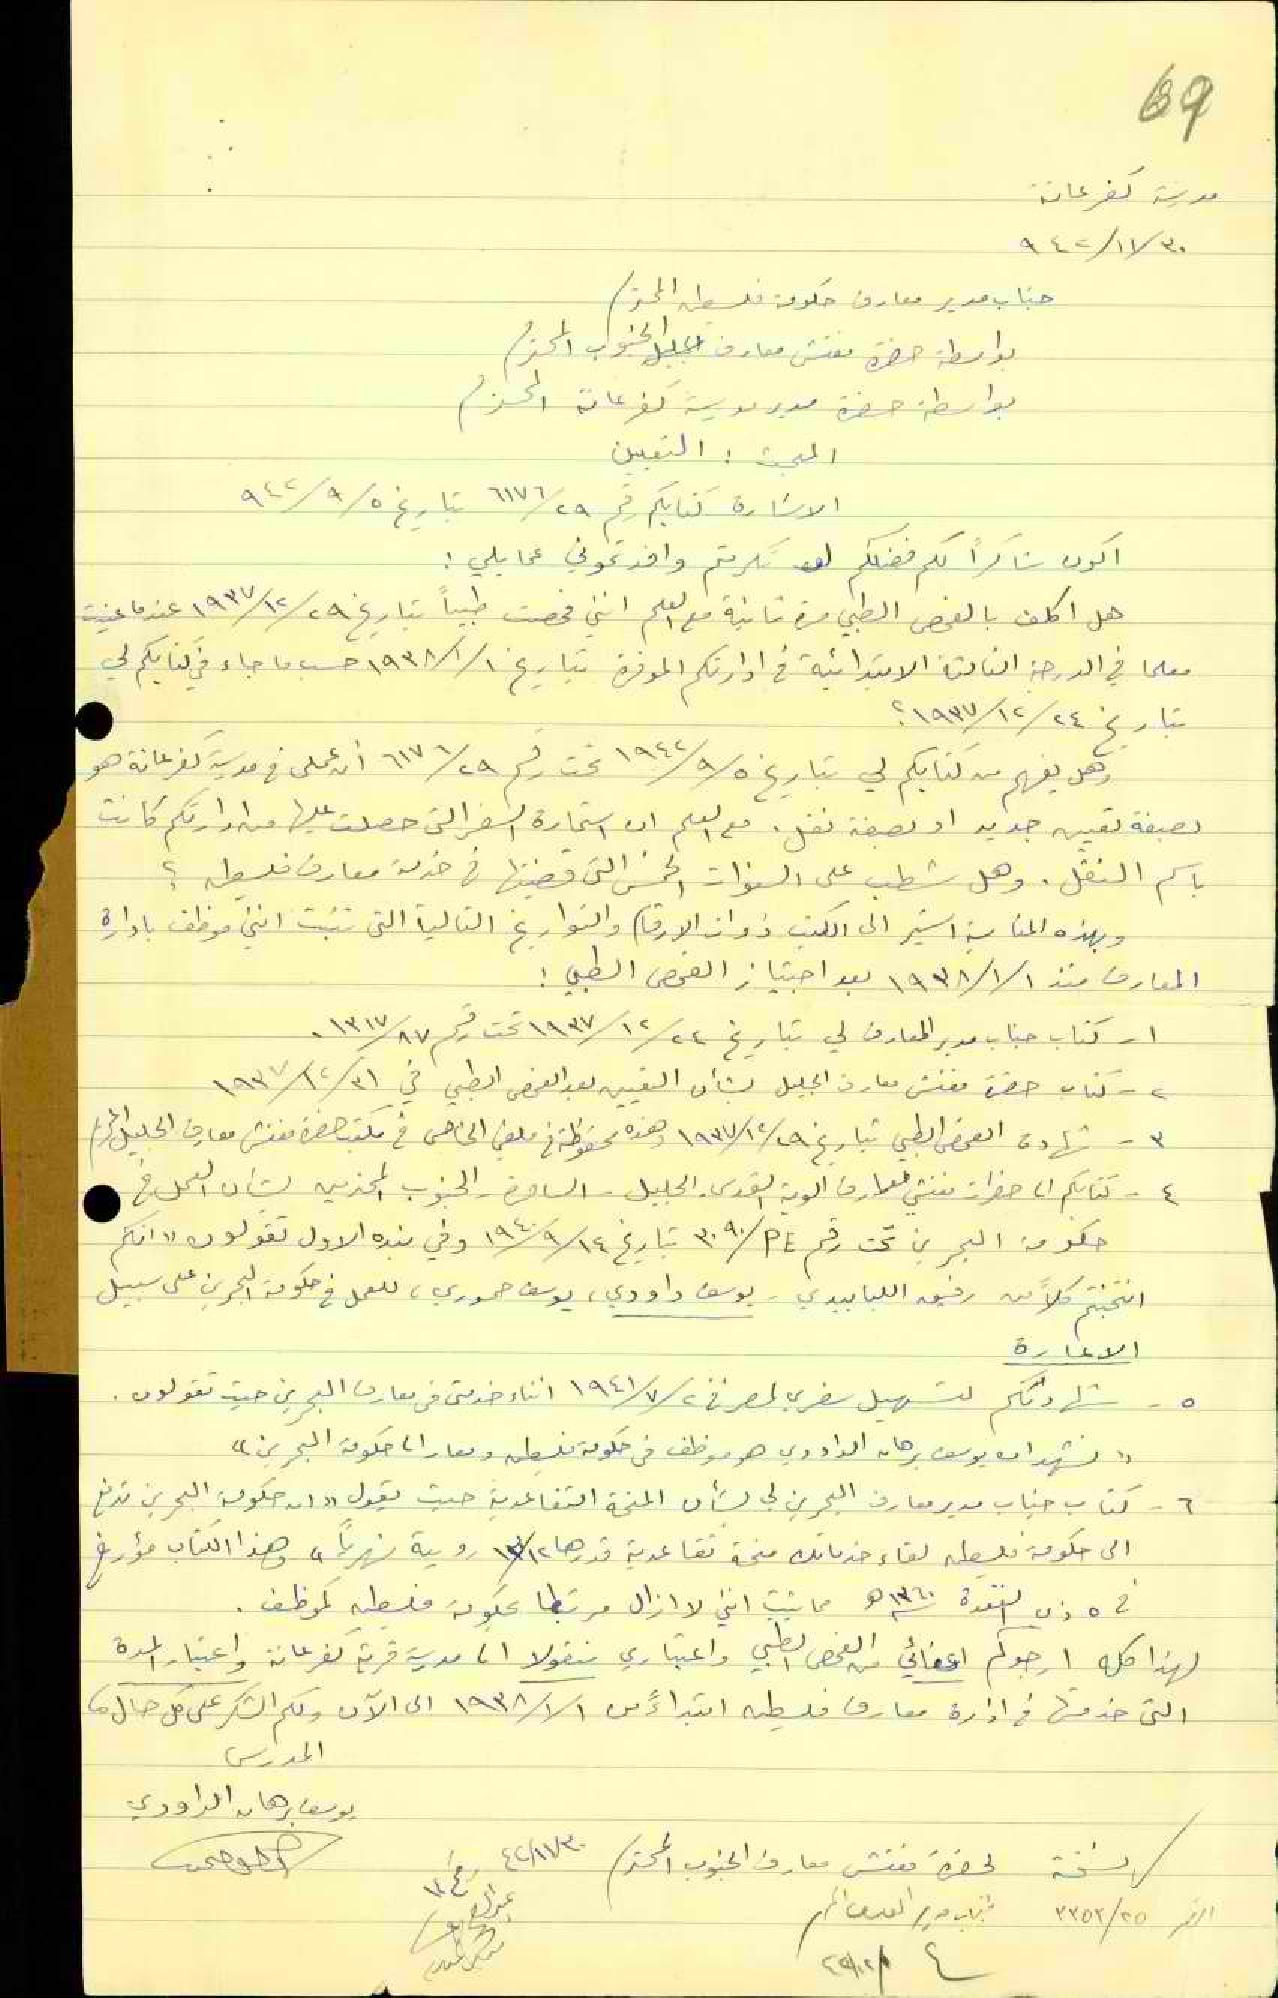 69
مدرسة كفرعانة
٣٠/١١/٩٤٢
جناب مدير معارف حكومة فلسطين المحترم
بواسطة حضرة مفتش معارف الجنوب المحترم
بواسطة حضرة مدير مدرسة كفرعانة المحترم
المبحث : التعيين
الاشارة كتابكم رقم ٦١٧٦/٢٩ بتاريخ ٩٤٢/٩/٥
اكون شاكراً لكم فضلكم لو تكرمتم وافدتموني عما يلي :
هل اكلف بالفحص الطبي مرة ثانية مع العلم انني فحصت طبياً بتاريخ ١٩٣٧/١٢/٢٩ عندما عينت
معلما في الدرجة الثالثة الابتدائية في ادارتكم الموقرة بتاريخ ١٩٣٨/١/١ حسب ما جاء في كتابكم لي
بتاريخ ١٩٣٧/١٢/٢٤ ؟
وهل يفهم من كتابكم لي بتاريخ ١٩٤٢/٩/٥ تحت رقم ٦١٧٦/٢٩ أن عملي في مدرسة كفرعانة هو
بصفة تعيين جديد او بصفة نقل . مع العلم ان استمارة السفر التي حصلت عليها من ادارتكم كانت
باسم النقل . وهل شطب على السنوات الخمس التي قضيتها في خدمة معارف فلسطين ؟
وبهذه المناسبة اشير الى الكتب ذوات الارقام والتواريخ التالية التي تثبت انني موظف بادارة
المعارف منذ ١٩٣٨/١/١ بعد اجتياز الفحص الطبي :
١ - كتاب جناب مدير المعارف لي بتاريخ ١٩٣٧/١٢/٢٤ تحت رقم ١٣١٧/٨٧ .
٢ - كتاب حضرة مفتش معارف الجليل بشأن التعيين بعد الفحص الطبي في ١٩٣٧/١٢/٣١
٣ - شهادة الفحص الطبي بتاريخ ١٩٣٧/١٢/٢٩ وهذه محفوظة في ملفي الخاص في مكتب حضرة مفتش معارف الجليل المحترم
٤ - كتابكم الى حضرات مفتشي معارف الوية القدس - الجليل - السامرة - الجنوب المحترمين بشأن العمل في
حكومة البحرين تحت رقم PE/٣٠٩٠ بتاريخ ١٩٤٠/٩/١٤ وفي بنده الاول تقولون « انكم
انتخبتم كلاً من رفيق اللبابيدي - يوسف داودي ، يوسف حموري ، للعمل في حكومة البحرين على سبيل
الاعارة
٥ - شهادتكم لتسهيل سفري لمصر في ١٩٤١/٧/٢ اثناء خدمتي في معارف البحرين حيث تقولون .
« نشهد ان يوسف برهان الداودي هو موظف في حكومة فلسطين ومعار الى حكومة البحرين »
٦ - كتاب جناب مدير معارف البحرين لي بشأن المنحة التقاعدية حيث يقول « ان حكومة البحرين تدفع
الى حكومة فلسطين لقاء خدماتك منحة تقاعدية قدرها روبية شهرياً » وهذا الكتاب مؤرخ
في ٥ ذي القعدة سنة ١٣٦٠ هـ مما يثبت انني لا ازال مرتبطا بحكومة فلسطين كموظف .
لهذا كله ارجوكم اعفائي من الفحص الطبي واعتباري منقولا الى مدرسة قرية كفرعانة واعتبار المدة
التي خدمتها في ادارة معارف فلسطين ابتداءً من ١٩٣٨/١/١ الى الآن ولكم الشكر على كل حال .
المدرس
يوسف برهان الداودي
نسخة لحضرة مفتش معارف الجنوب المحترم
٤٢/١١/٣٠
الرقم ٣٣٥٢/٢٥